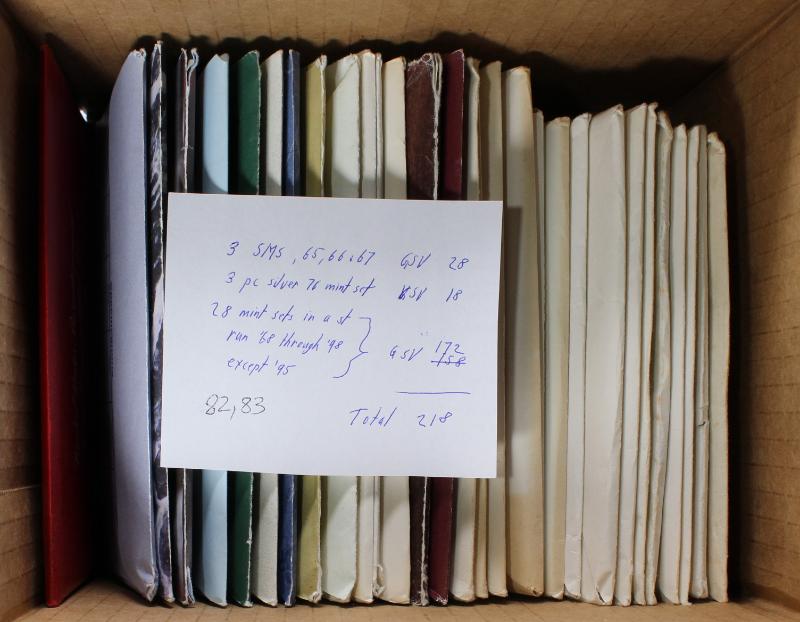 3 SMS, 65, 66 & 67 GSV 28
3 pc silver 76 mint set GSV 18
28 mint sets in a st
run '68 through '98
except '95
GSV 172
158
82, 83
Total 218